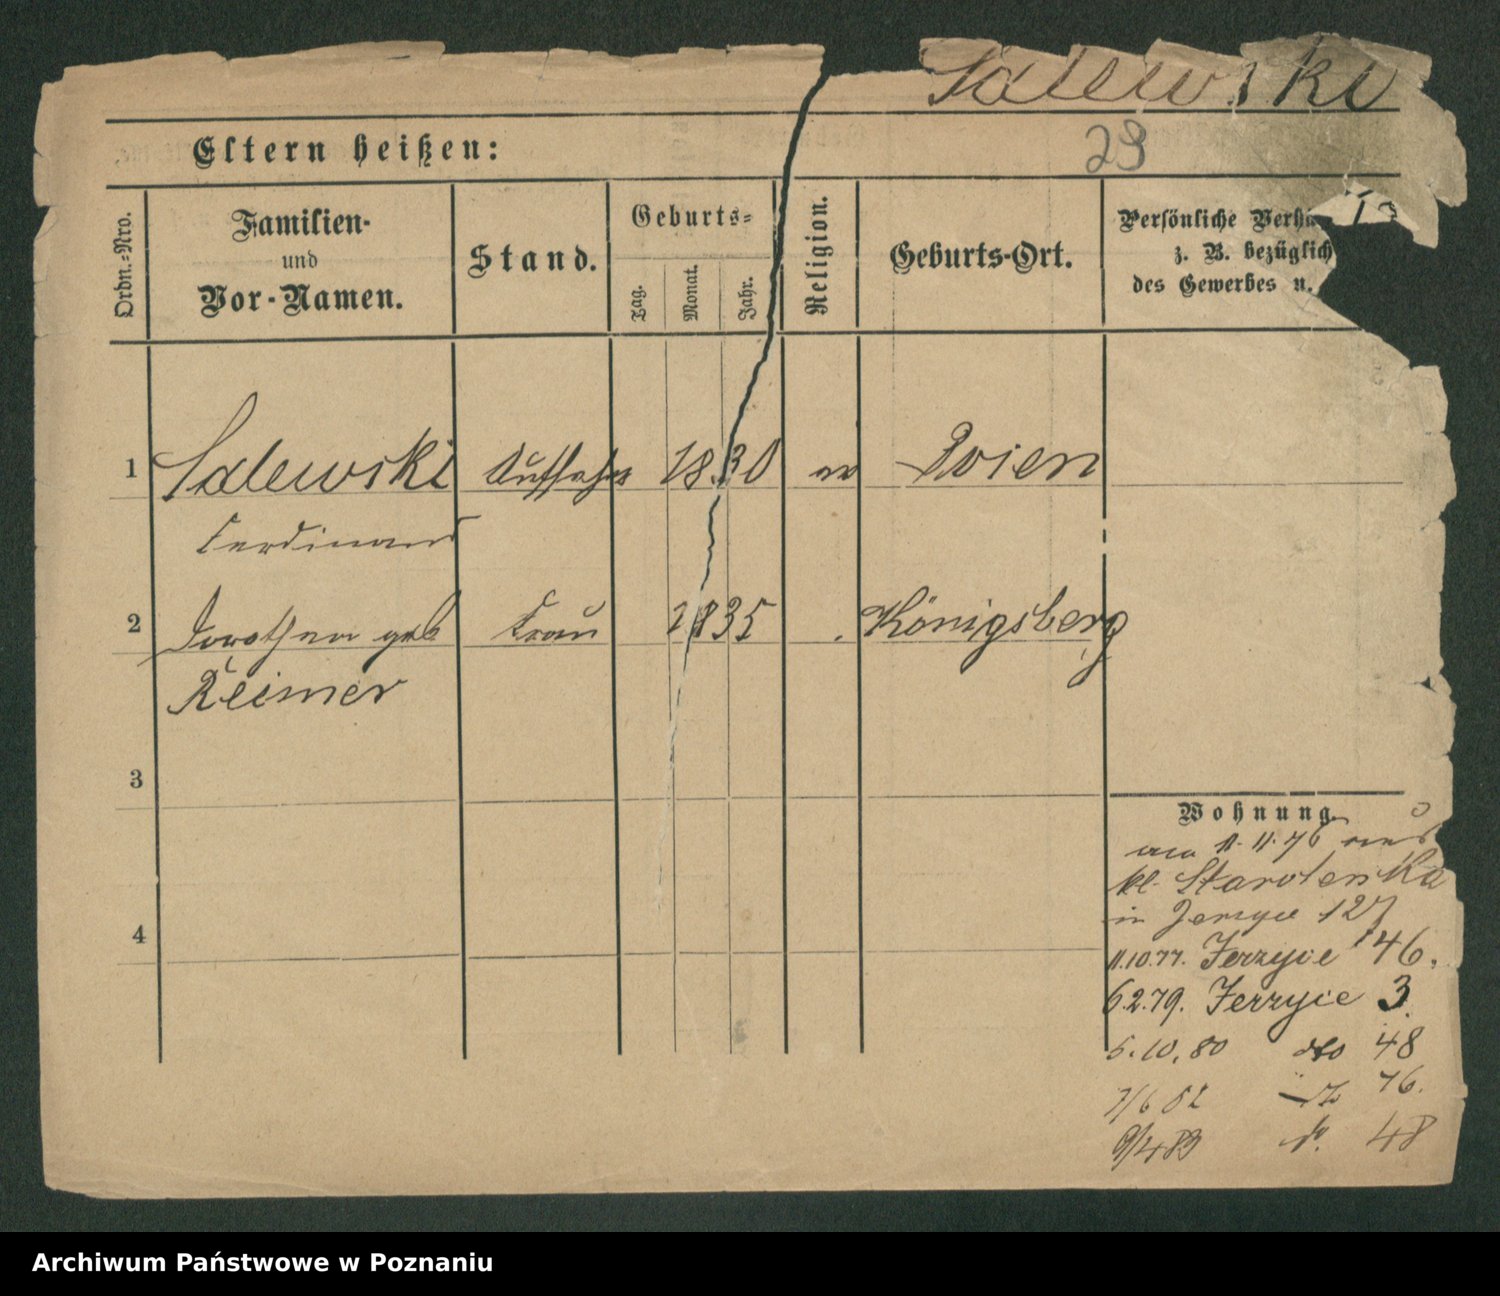 Salewski
29
Eltern heißen:
Ordn.-Nro.
Familien-
und
Vor-Namen.
Stand.
Geburts-
Tag.
Monat.
Jahr.
Religion.
Geburts-Ort.
Persönliche Verhä
z. B. bezüglich
des Gewerbes u.
1 Salewski 1830 Posen
Ferdinand
2 Dorothea geb Frau 1835 Königsberg
Reimer
3
4
Wohnung.
11. 11. 76
kl. Starolenka
in Jerzyce 127
11.10.77. Jerzyce 146.
6.2.79. Jerzyce 3.
5.10.80 dto 48
7/6 82 76.
9/4 83 48
Archiwum Państwowe w Poznaniu